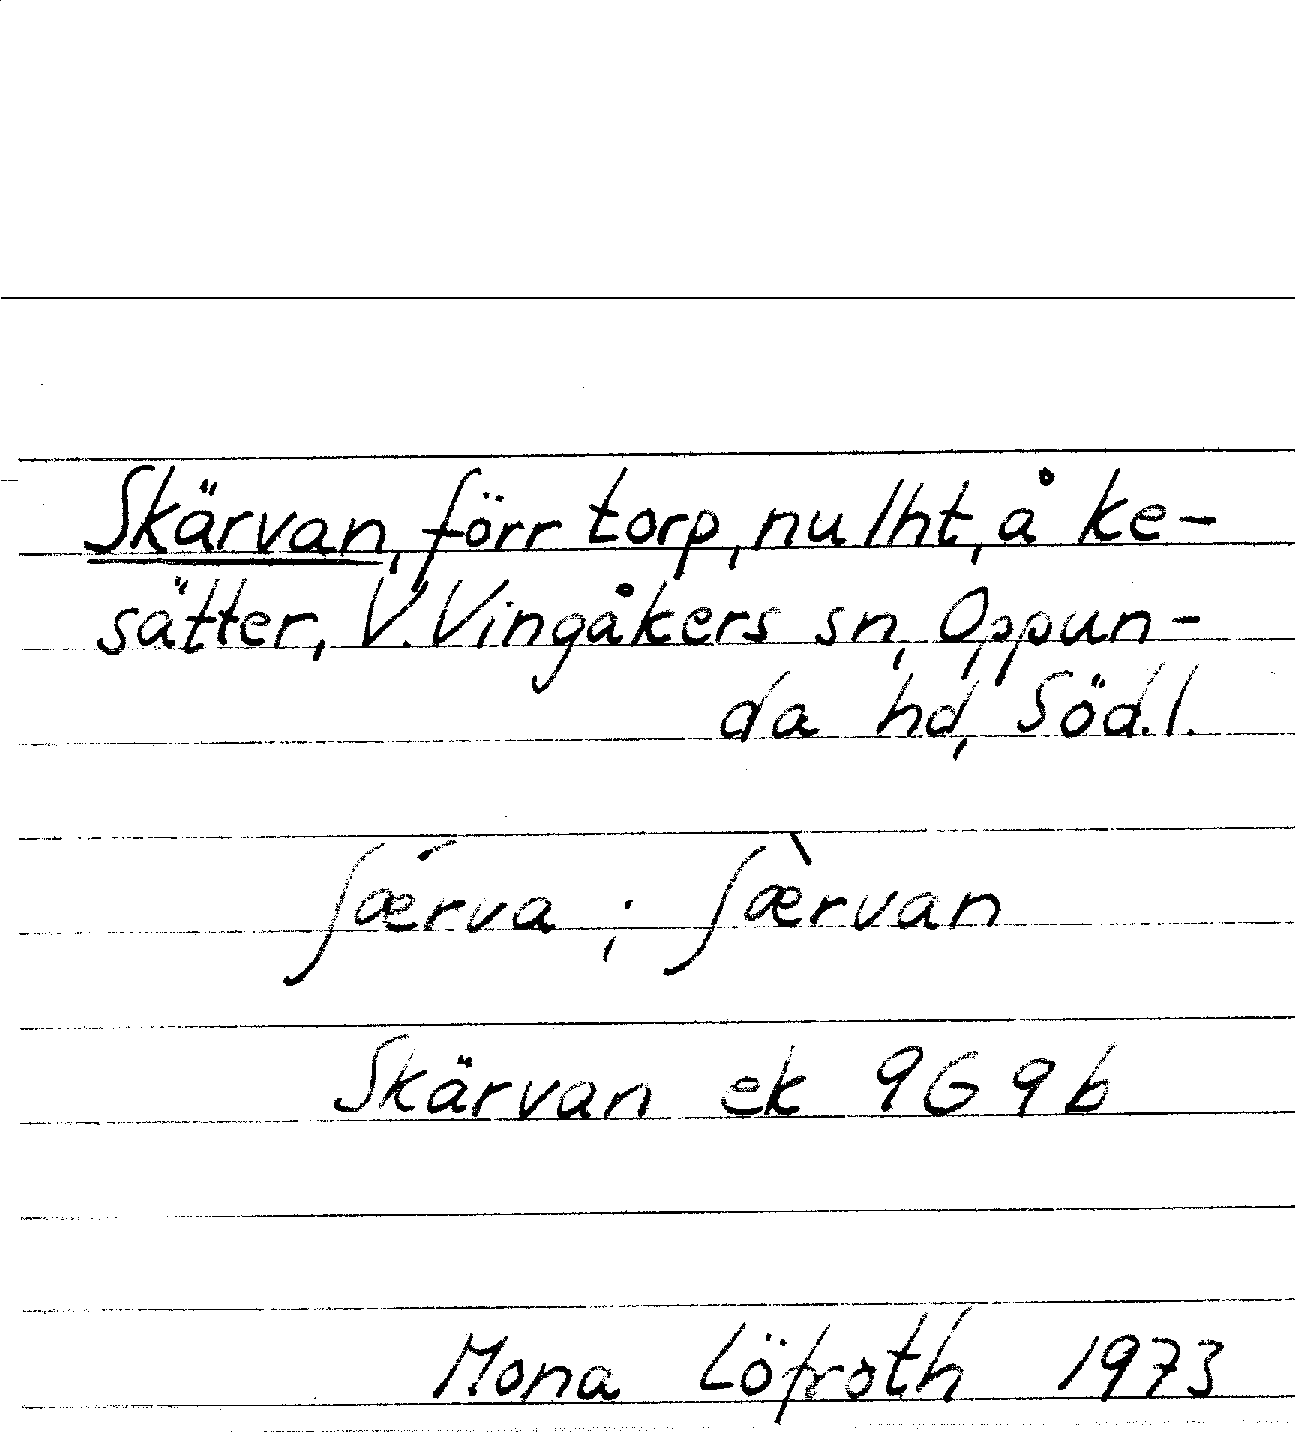 Skärvan, förr torp, nu lht, å ke-
sätter, V. Vingåkers sn, Oppun-
da hd, Söd.l.
ʃǽrva ; ʃæ̀rvan
Skärvan ek 9G 9b
Mona Löfroth 1973